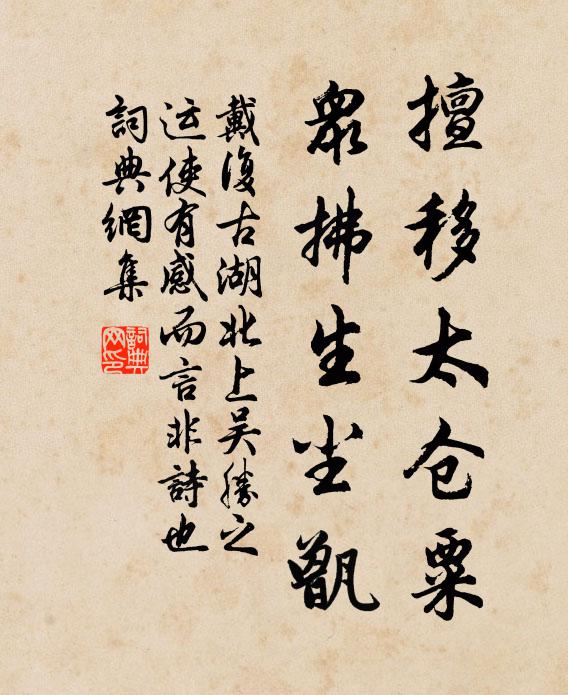 擅移太仓粟
眾拂生尘甑
戴復古湖北上吴勝之
运使有感而言非詩也
詞典網集
詞典网印